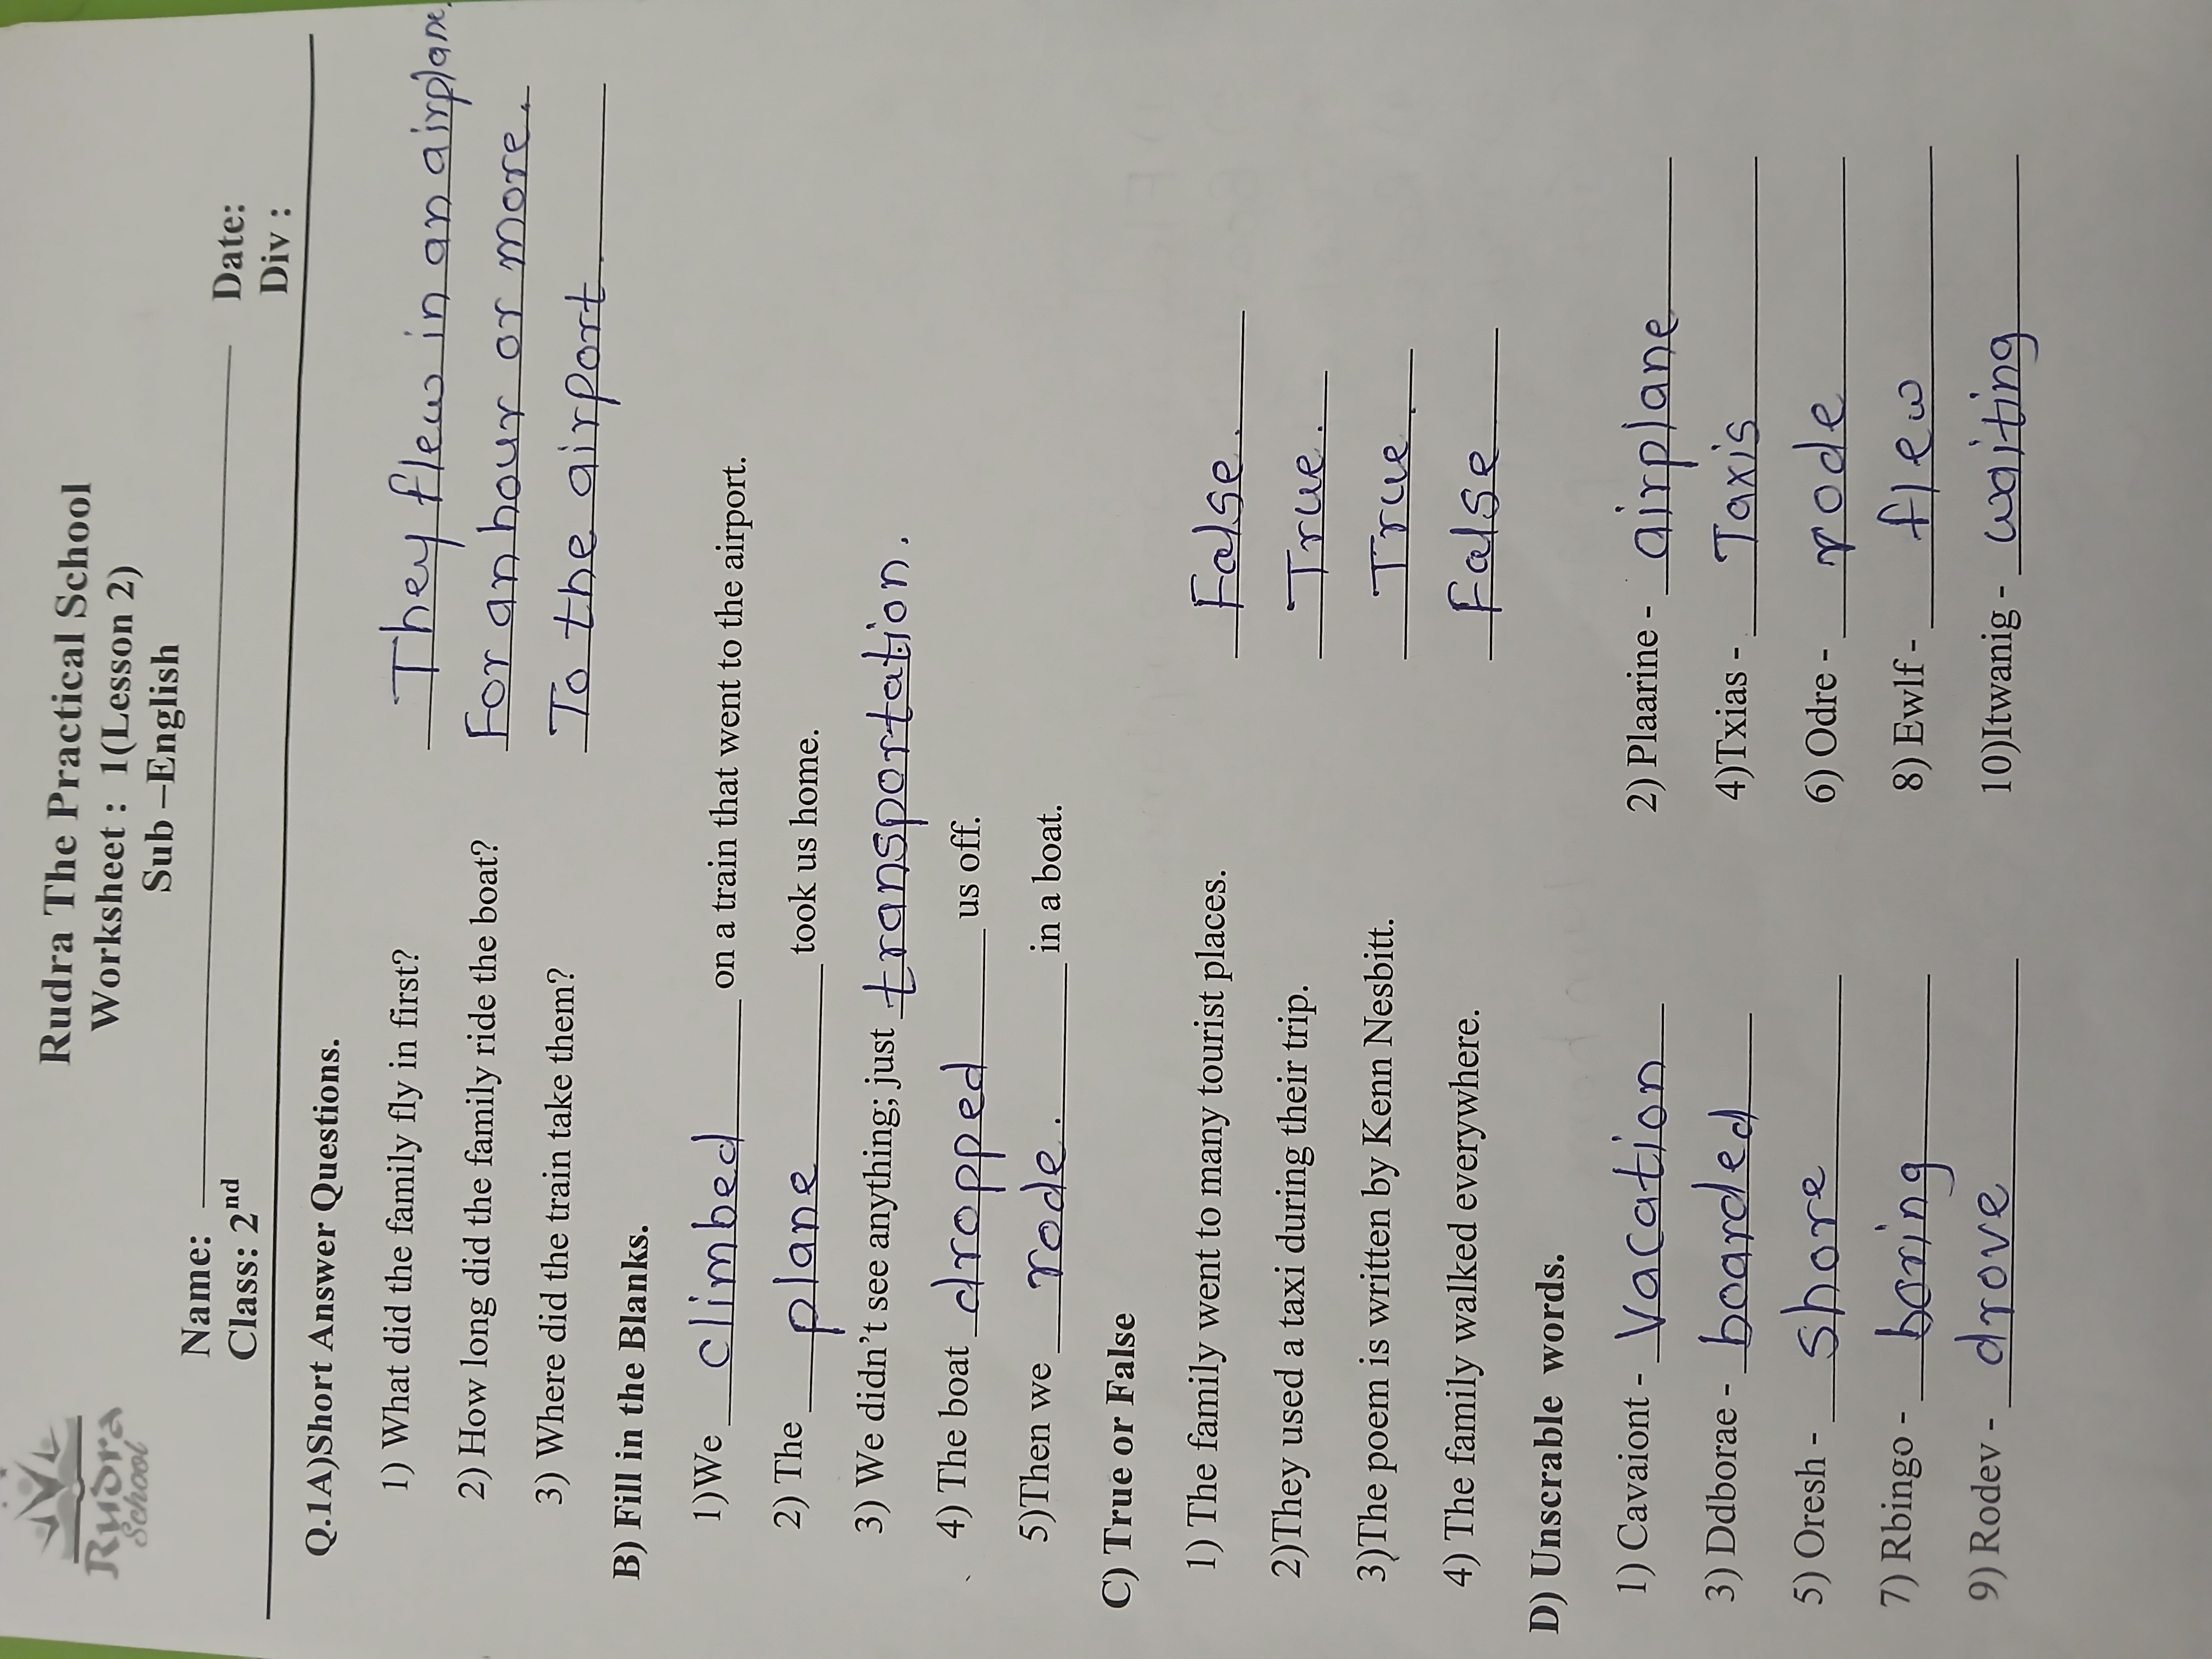 Rudra
School
Rudra The Practical School
Worksheet : 1(Lesson 2)
Sub –English
Name: ____________ Date:
Class: 2nd Div :
Q.1A)Short Answer Questions.
1) What did the family fly in first? They flew in an airplane.
2) How long did the family ride the boat? For an hour or more.
3) Where did the train take them? To the airport.
B) Fill in the Blanks.
1)We climbed on a train that went to the airport.
2) The plane took us home.
3) We didn't see anything; just transportation.
4) The boat dropped us off.
5)Then we rode. in a boat.
C) True or False
1) The family went to many tourist places. False.
2)They used a taxi during their trip. True.
3)The poem is written by Kenn Nesbitt. True.
4) The family walked everywhere. False
D) Unscrable words.
1) Cavaiont - Vacation 2) Plaarine - airplane
3) Ddborae - boarded 4)Txias - Taxis
5) Oresh - Shore 6) Odre - rode
7) Rbingo - boring 8) Ewlf - flew
9) Rodev - drove 10)Itwanig - waiting